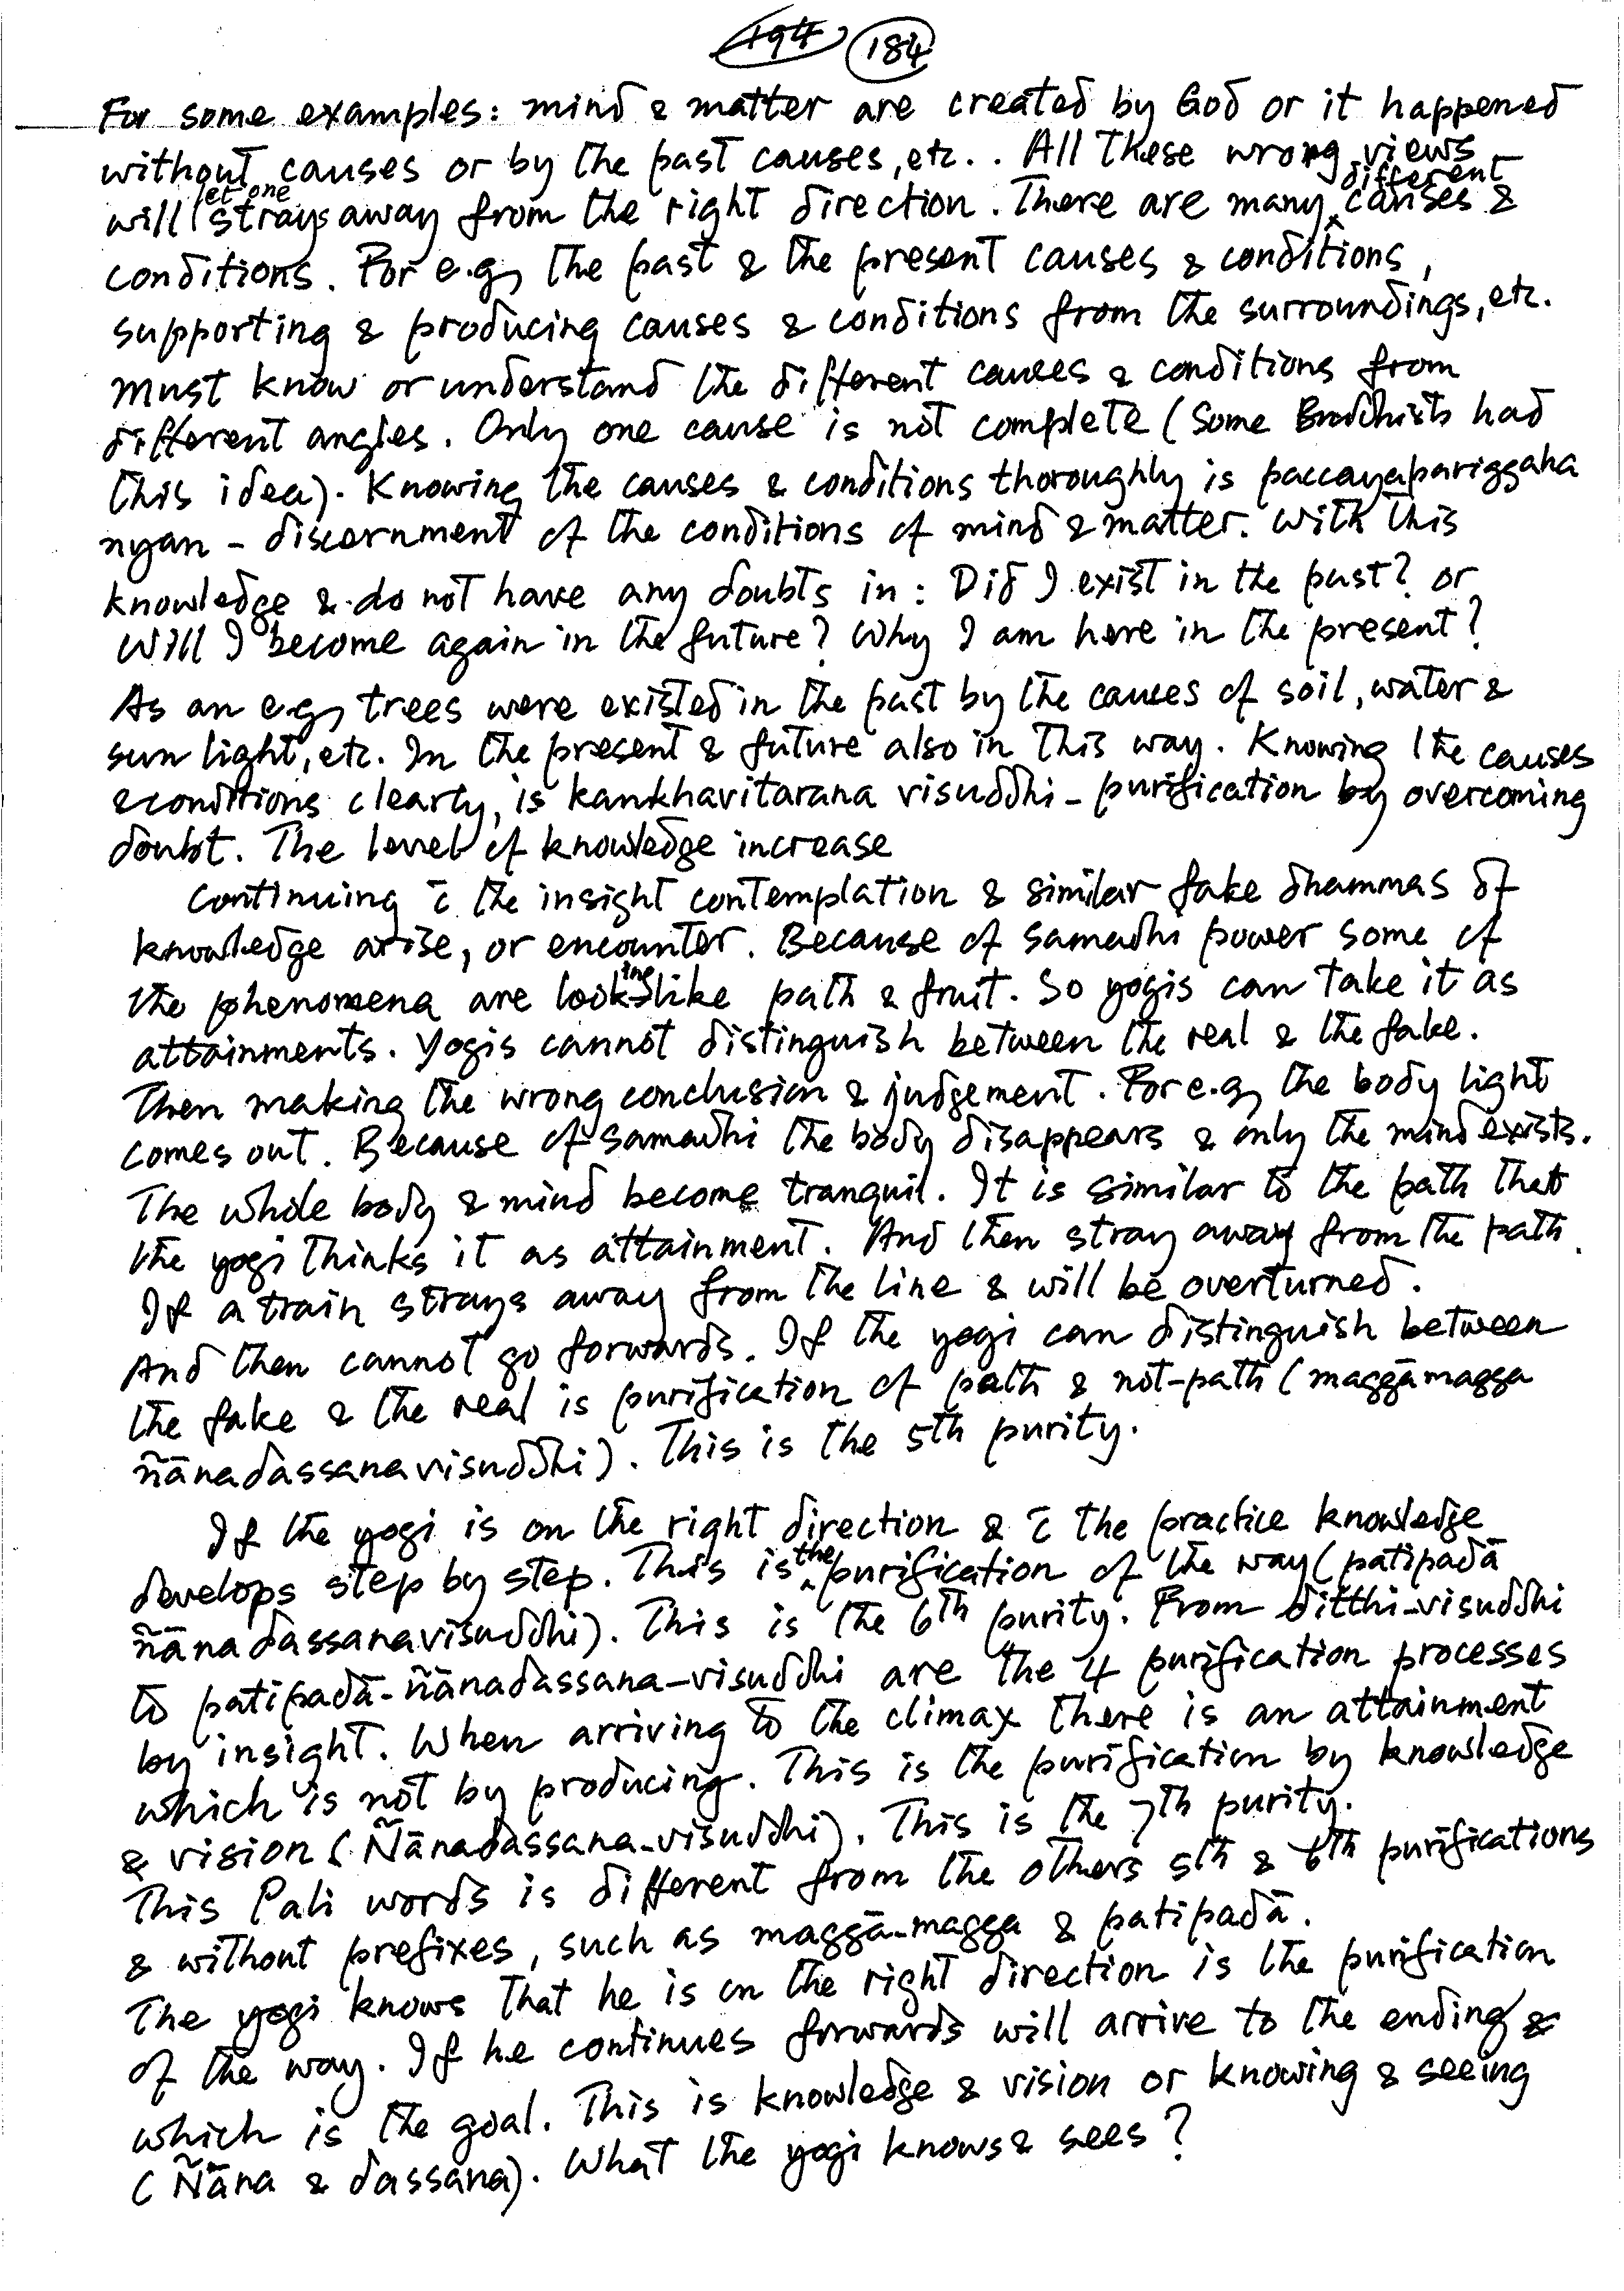 194 184
For some examples: mind & matter are created by God or it happened
without causes or by the past causes, etc.. All these wrong views
will let one strays away from the right direction. There are many different causes &
conditions. For e.g, the past & the present causes & conditions,
supporting & producing causes & conditions from the surroundings, etc.
must know or understand the different causes & conditions from
different angles. Only one cause is not complete (some Buddhists had
this idea). Knowing the causes & conditions thoroughly is paccayapariggaha
nyan - discernment of the conditions of mind & matter. With this
knowledge & do not have any doubts in: Did I exist in the past? or
Will I become again in the future? Why I am here in the present?
As an e.g, trees were existed in the past by the causes of soil, water &
sun light, etc. In the present & future also in this way. Knowing the causes
& conditions clearly, is kankhavitarana visuddhi - purification by overcoming
doubt. The level of knowledge increase
Continuing c̄ the insight contemplation & similar fake dhammas of
knowledge arise, or encounter. Because of samadhi power some of
the phenomena are looking like path & fruit. So yogis can take it as
attainments. Yogis cannot distinguish between the real & the fake.
Then making the wrong conclusion & judgement. For e.g, the body light
comes out. Because of samadhi the body disappears & only the mind exists.
The whole body & mind become tranquil. It is similar to the path that
the yogi thinks it as attainment. And then stray away from the path.
If a train strays away from the line & will be overturned.
And then cannot go forwards. If the yogi can distinguish between
the fake & the real is purification of path & not-path (maggāmagga
ñānadassanavisuddhi). This is the 5th purity.
If the yogi is on the right direction & c̄ the practice knowledge
develops step by step. This is the purification of the way (patipadā
ñānadassanavisuddhi). This is the 6th purity. From ditthi-visuddhi
to patipadā-ñānadassana-visuddhi are the 4 purification processes
by insight. When arriving to the climax there is an attainment
which is not by producing. This is the purification by knowledge
& vision (Ñānadassana-visuddhi). This is the 7th purity.
This Pali words is different from the others 5th & 6th purifications
& without prefixes, such as maggā-magga & patipadā.
The yogi knows that he is on the right direction is the purification
of the way. If he continues forwards will arrive to the ending &
which is the goal. This is knowledge & vision or knowing & seeing
(Ñāna & dassana). What the yogi knows & sees?